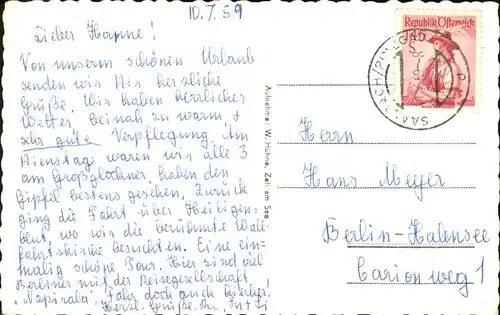 10.7.59
Lieber Hanne!
Von unserm schönen Urlaub
senden wir Dir herzliche
Grüße. Wir haben herrliches
Wetter beinah zu warm, &
sehr gute Verpflegung. Am
Dienstag waren wir alle 3
am Großglockner, haben den
Gipfel bestens gesehen. Zurück
ging die Fahrt über Heiligen-
blut, wo wir die berühmte Wall-
fahrtskirche besuchten. Eine ein-
malig schöne Tour. Hier sind viel
Berliner mit der Reisegesellschaft
"Napirala". Fahr doch auch hierher!
Herzl. Grüße
Aufnahme: W. Hühne, Zell am See
Republik Österreich
1.45
Herrn
Hans Meyer
Berlin-Halensee
Carionweg 1